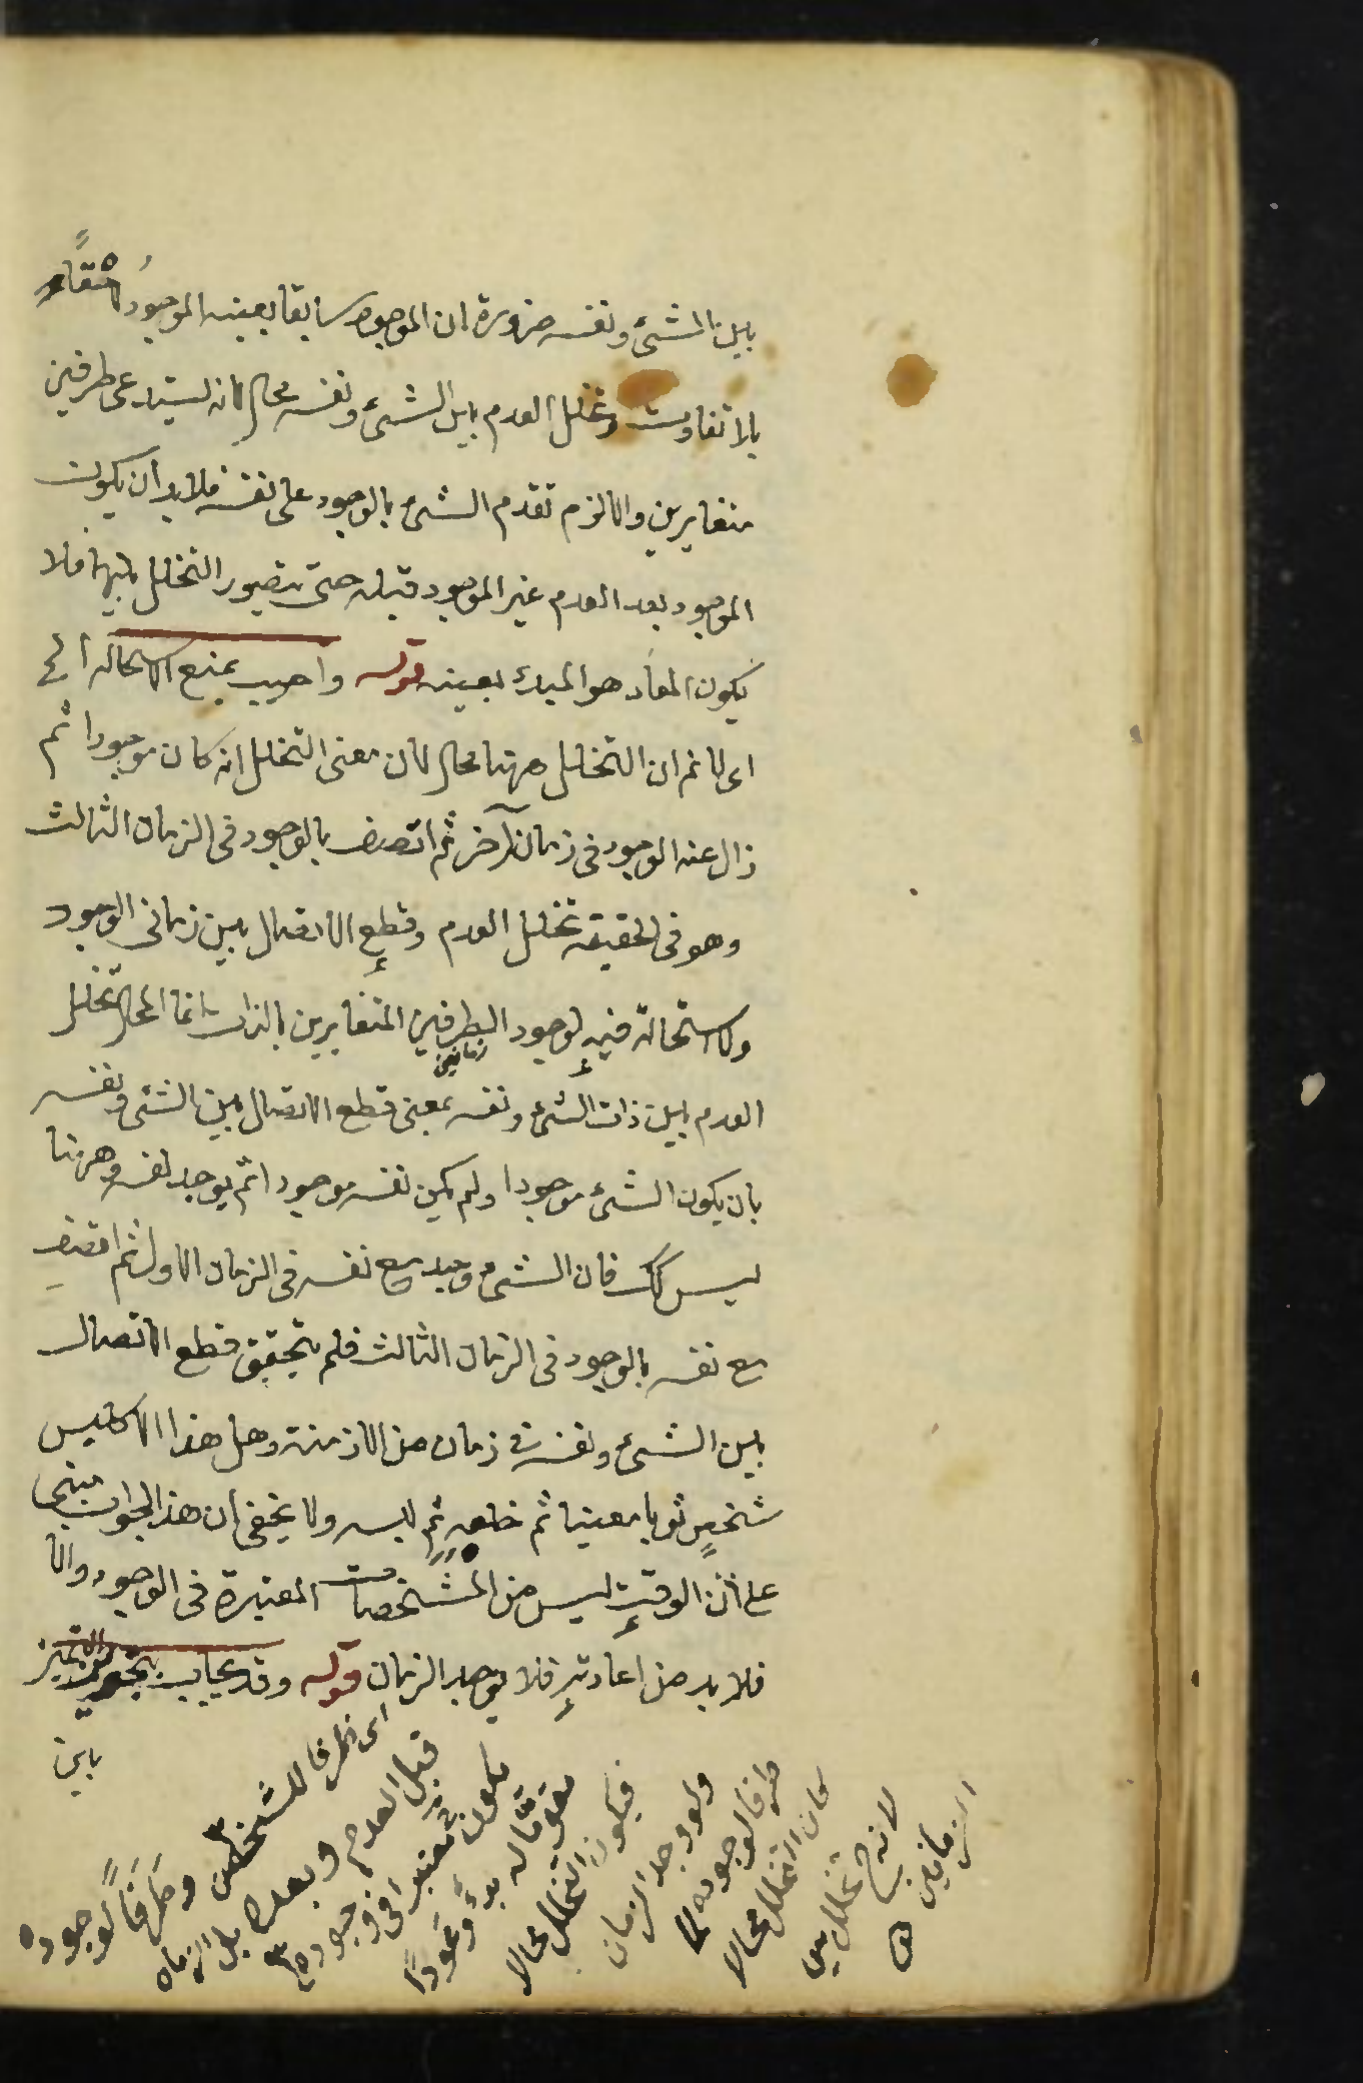 بين الشئ ونفسه ضرورة ان الموجود سابقا بعينه الموجود لاحقا
بلا تفاوت وتخلل العدم بين الشئ ونفسه محال لانه يستدعى طرفين
متغايرين والا لزم تقدم الشئ بالوجود على نفسه فلا بد ان يكون
الموجود بعد العدم غير الموجود قبله حتى يتصور التخلل بينهما فلا
يكون المعاد هو المبدء بعينه قوله واجيب بمنع الاستحالة الخ
اى لا نم ان التخلل ههنا محال لان معنى التخلل انه كان موجودا ثم
زال عنه الوجود فى زمان آخر ثم اتصف بالوجود فى الزمان الثالث
وهو فى الحقيقة تخلل العدم وقطع الاتصال بين زمانى الوجود
ولا استحالة فيه لوجود الطرفين المتغايرين بالذات انما المحال تخلل
زمانين
العدم بين ذات الشئ ونفسه بمعنى قطع الاتصال بين الشئ ونفسه
بان يكون الشئ موجودا ولم يكن نفسه موجودا ثم يوجد نفسه وههنا
ليس كك فان الشئ وجد مع نفسه فى الزمان الاول ثم اتصف
مع نفسه بالوجود فى الزمان الثالث فلم يتحقق قطع الاتصال
بين الشئ ونفسه فى زمان من الازمنة وهل هذا الا كلبس
شخص ثوبا معينا ثم خلعه ثم لبسه ولا يخفى ان هذا الجواب مبنى
على ان الوقت ليس من المشخصات المعتبرة فى الوجود والا
فلا بد من اعادته فلا يوجد الزمان قوله وقد يجاب بتجويز التميز
اى ظرفا للشخص وظرفا لوجوده
قبل العدم وبعده بل الزمان
يكون معتبرا فى وجوده
بدء وعودا
فيكون التخلل محالا
ولو وجد الزمان
ظرفا لوجوده لا
كان التخلل محالا
لانه ح تخلل بين
الزمانين